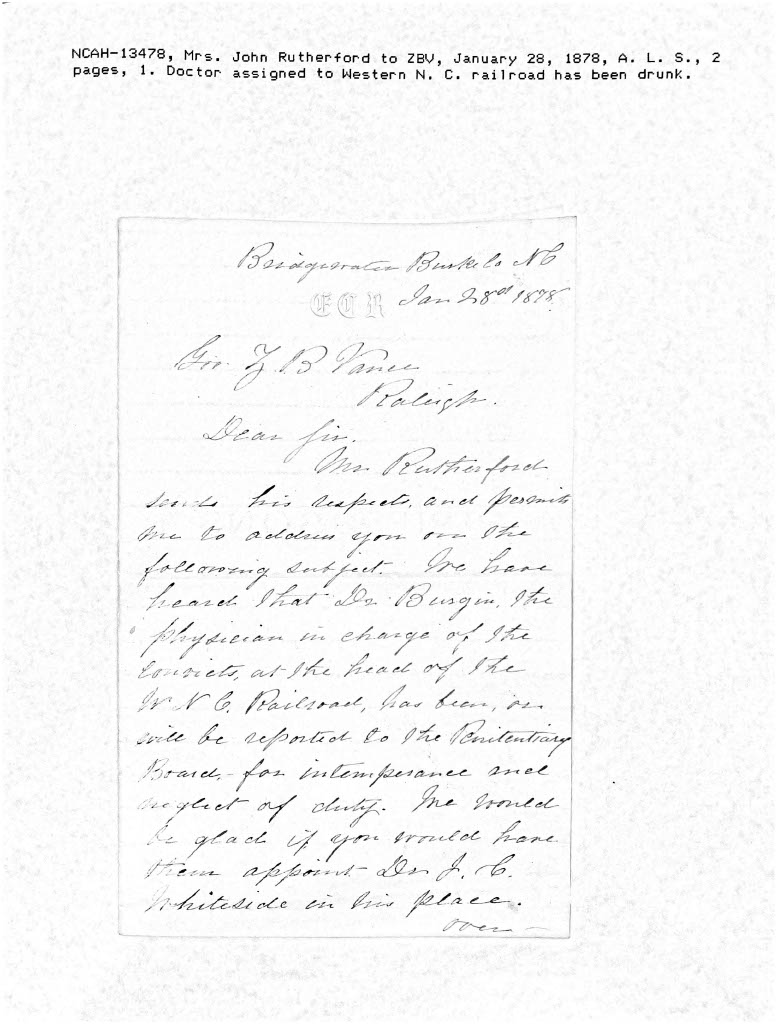 NCAH-13478, Mrs. John Rutherford to ZBV, January 28, 1878, A. L. S., 2
pages, 1. Doctor assigned to Western N. C. railroad has been drunk.
Bridgewater Burke Co N C
ECR Jan 28d 1878.
Gov. Z B Vance
Raleigh.
Dear Sir.
Mr Rutherford
sends his respects, and permits
me to address you on the
following subject. We have
heard that Dr Burgin, the
physician in charge of the
convicts, at the head of the
W N C. Railroad, has been, or
will be reported to the Penitentiary
Board,- for intemperance and
neglect of duty. We would
be glad if you would have
them appoint Dr J. C.
Whiteside in his place.
over -